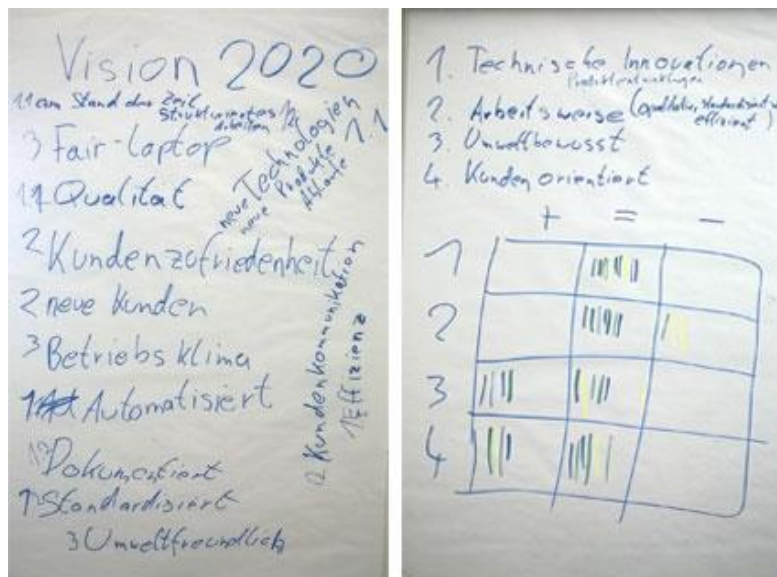 Vision 2020
1.1 am Stand der Zeit
strukturiertes
arbeiten
3 Fair-laptop
neue Technologien 1.1
neue Produkte
Abläufe
Qualität
2 Kundenzufriedenheit
2 neue Kunden
3 Betriebsklima
Automatisiert
Dokumentiert
1 Standardisiert
3 Umweltfreundlich
2 Kundenkommunikation
1 Effizienz
1. Technische Innovationen
Produktentwicklungen
2. Arbeitsweise (qualitativ, standardisiert
effizient)
3. Umweltbewusst
4. Kundenorientiert
+ = -
1
2
3
4